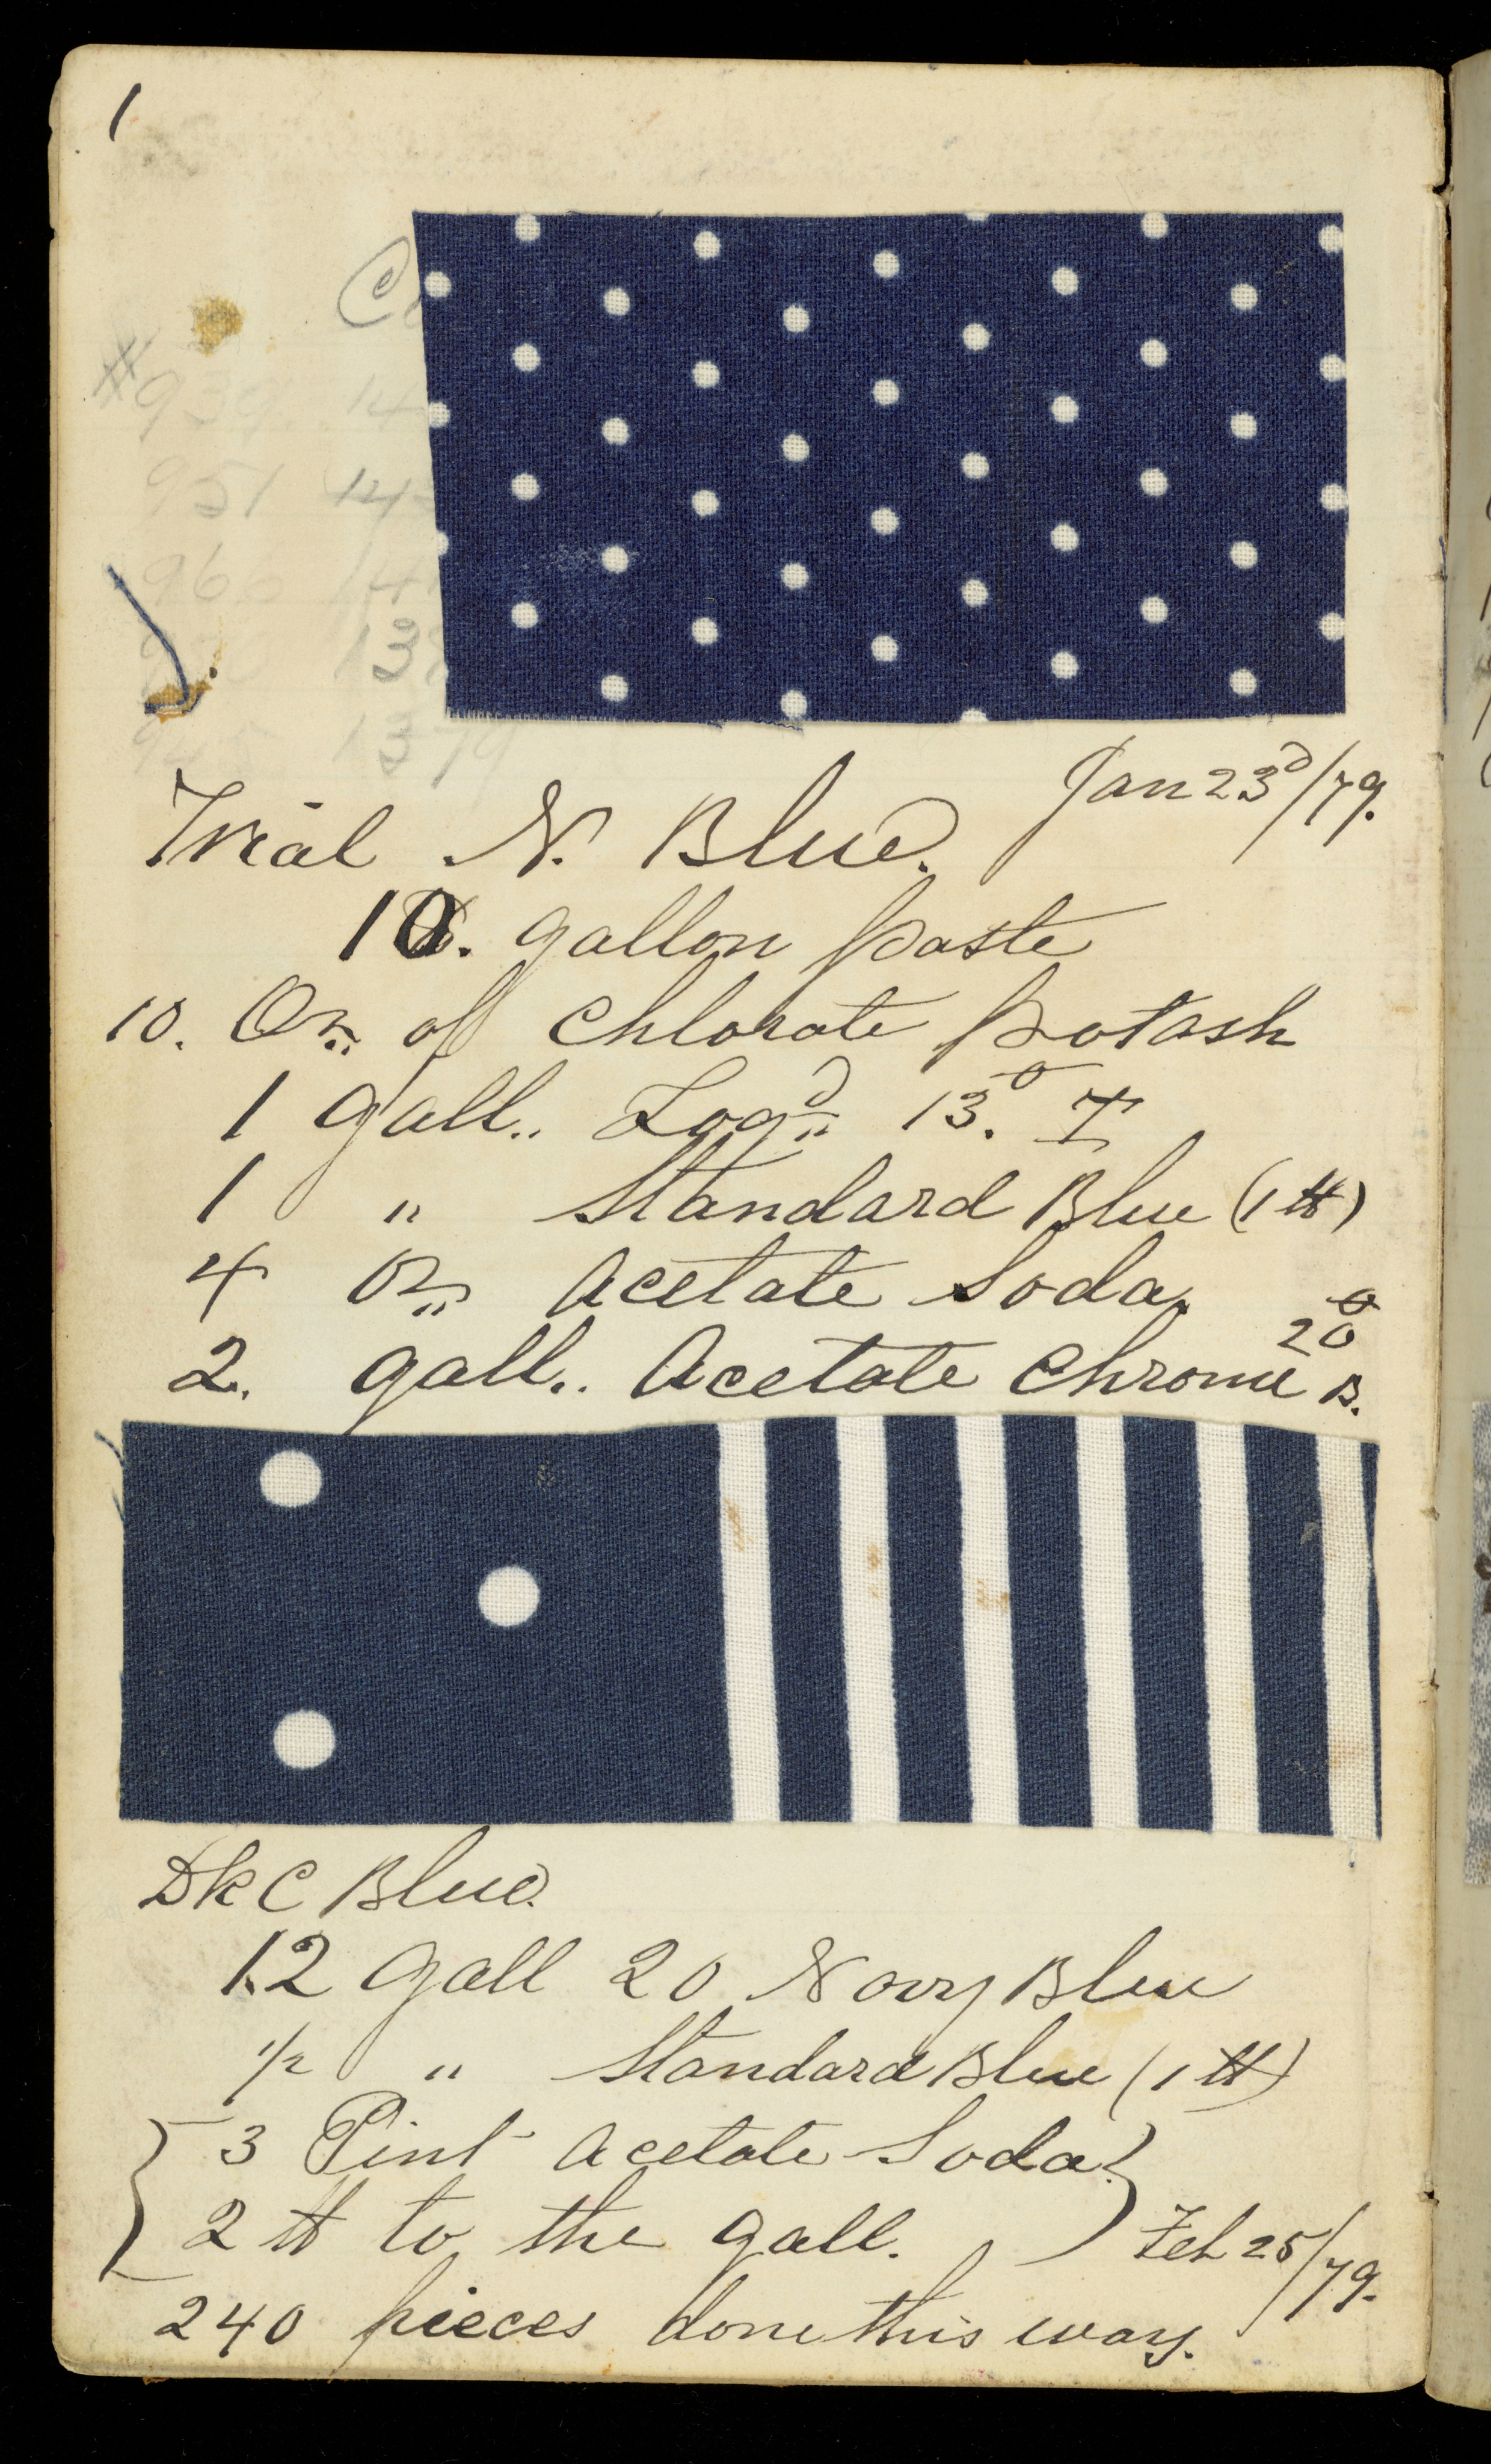 1
C
# 939 14
951 14
966 14
13
945 1379
Jan 23d/79.
Trial N. Blue.
10. gallon paste
10. Oz. of Chlorate Potash
1 gall.. Logd 13.o T
1 " Standard Blue (1 ℔)
4 Oz Acetate Soda.
2. gall.. Acetate Chrome 20o B.
Dk C Blue.
12 Gall 20 Navy Blue
1/2 " Standard Blue (1 ℔)
3 Pint Acetate Soda
2 ℔ to the gall.
Feb 25/79.
240 pieces done this way.